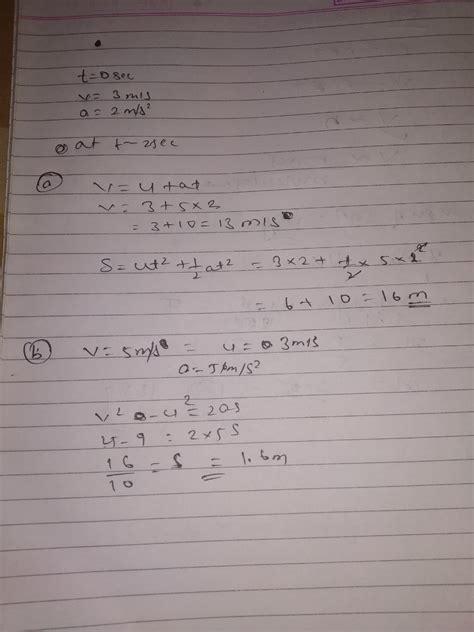 t=0sec
v= 3m/s
a= 2m/s²
at t-2sec
(a) v=u+at
v= 3+5×2
= 3+10=13m/s
S=ut²+1/2at² = 3×2+1/2×5×2²
= 6+10=16m
(b) v=5m/s = u=3m/s
a=5m/s²
v²-u²=2as
4-9 = 2×5S
16/10 = S = 1.6m